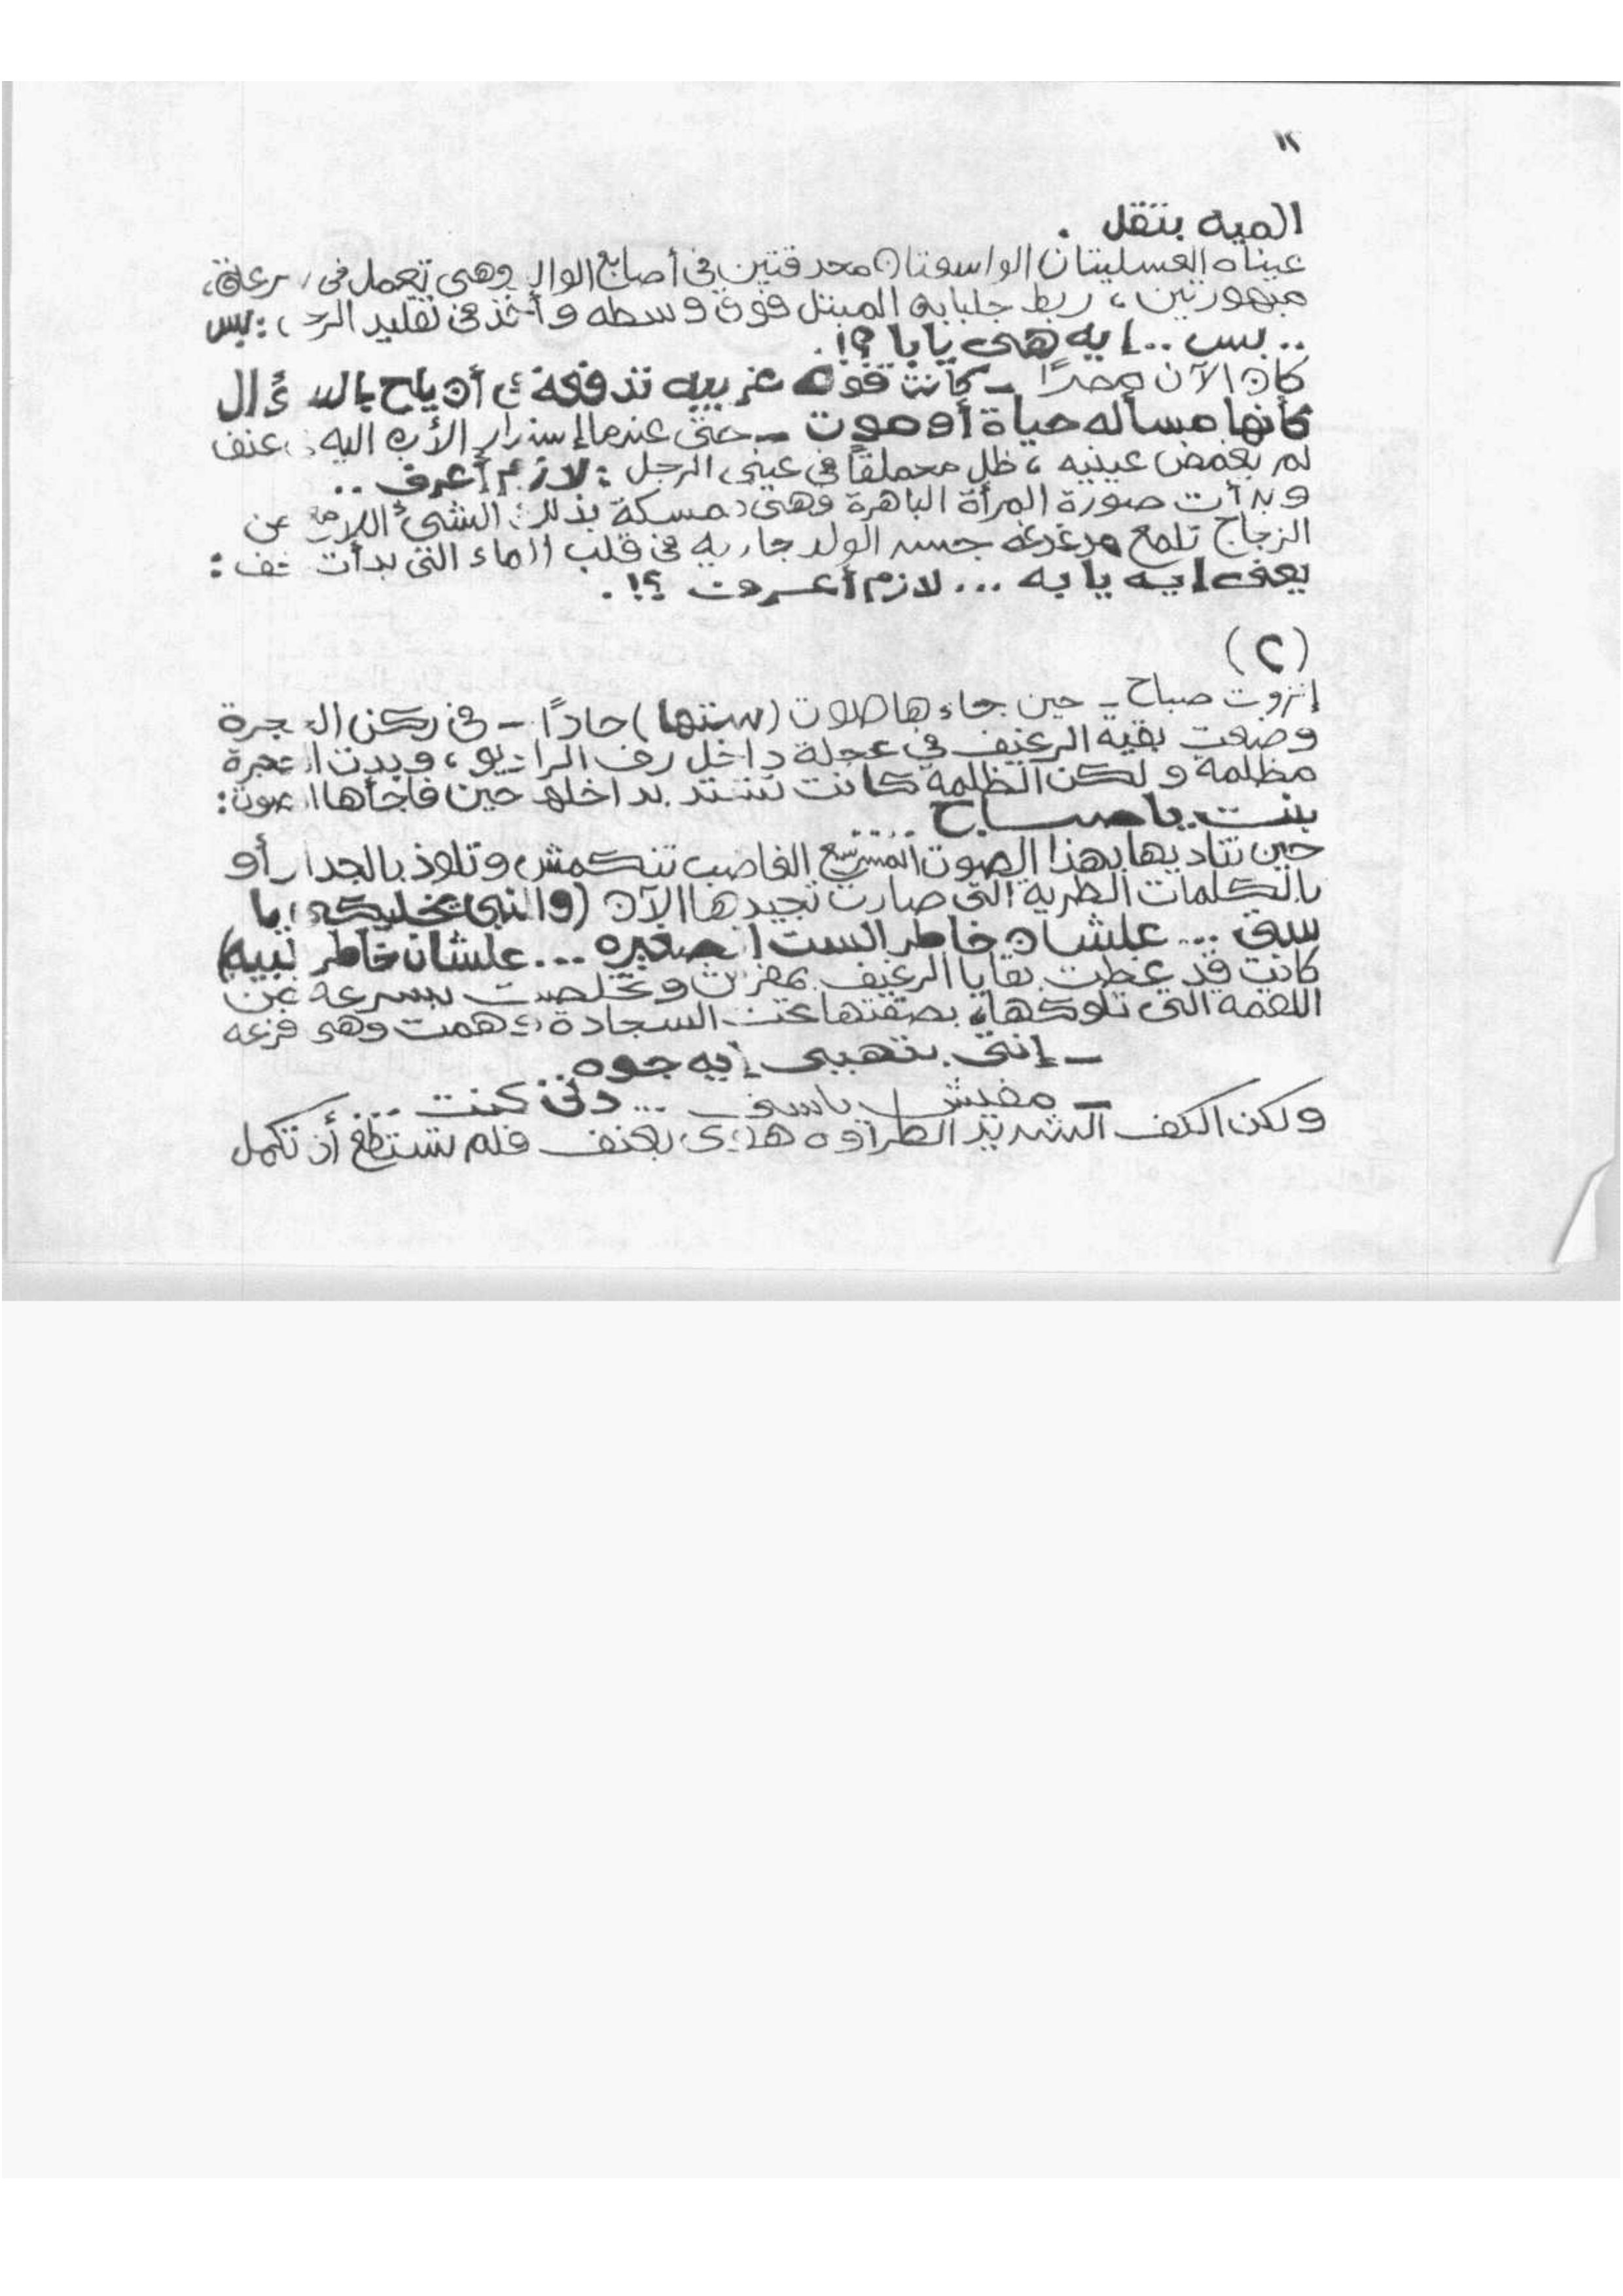 ١٢
الميه بتقل .
عيناه العسليتان الواسعتان محدقتين في أصابع الوالد وهى تعمل فى سرعة،
مبهورتين، ربط جلبابه المبتل فوق وسطه وأخذ فى تقليد الرجل : بس
.. بس .. إيه هى يابا ؟! .
كان الآن مصرًا – كانت قوة غريبه تدفعه أن يلح بالسؤال
كأنها مسأله حياة أو موت – حتى عندما إستدار الأب اليه عنف
لم يغمض عينيه ، ظل محملقاً فى عينى الرجل : لازم أعرف ..
وبدأت صورة المرأة الباهرة وهى ممسكة بذلك الشئ اللامع عن
الزجاج تلمع مدغدغه جسد الولد جاريه فى قلب الماء التى بدأت تخف :
يعنى إيه يا به ... لازم أعرف ؟! .
(٢)
إنزوت صباح – حين جاءها صوت (ستها) حادًا – فى ركن الحجرة
وضعت بقية الرغيف في عجلة داخل رف الراديو ، وبدت الحجرة
مظلمه ولكن الظلمه كانت تشتد بداخلها حين فاجأها الصوت :
بنت يا صباح
حين تناديها بهذا الصوت المتسرع الغاضب تنكمش وتلوذ بالجدار أو
بالكلمات الطريه التى صارت تجيدها الآن (والنبى يخليكى يا
ستى ... علشان خاطر الست الصغيره ... علشان خاطر نبيه)
كانت قد غطت بقايا الرغيف بمفرش وتخلصت بسرعه عن
اللقمه التى تلوكها، بصقتها تحت السجادة وهمت وهى فزعه
– إنتى بتهببى إيه جوه
– مفيش يا ستى ... دنى كنت ..
ولكن الكف الشديد الطراوه هوى بعنف فلم تستطع أن تكمل